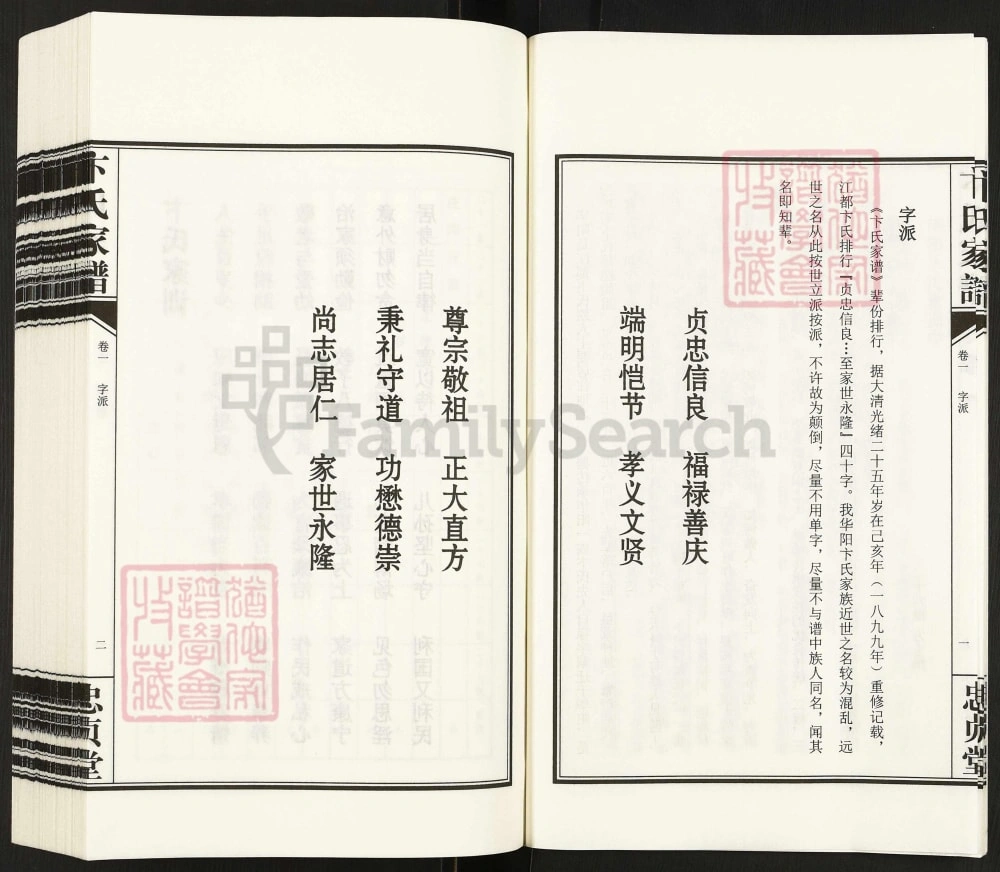 卞氏家谱
卷一 字派
一
忠贞堂
字派
《卞氏家谱》辈份排行，据大清光绪二十五年岁在己亥年（一八九九年）重修记载，
江都卞氏排行『贞忠信良…至家世永隆』四十字。我华阳卞氏家族近世之名较为混乱，远
世之名从此按世立派按派，不许故为颠倒，尽量不用单字，尽量不与谱中族人同名，闻其
名即知辈。
贞忠信良 福禄善庆
端明恺节 孝义文贤
尊宗敬祖 正大直方
秉礼守道 功懋德崇
尚志居仁 家世永隆
卞氏家谱
卷一 字派
二
忠贞堂
FamilySearch